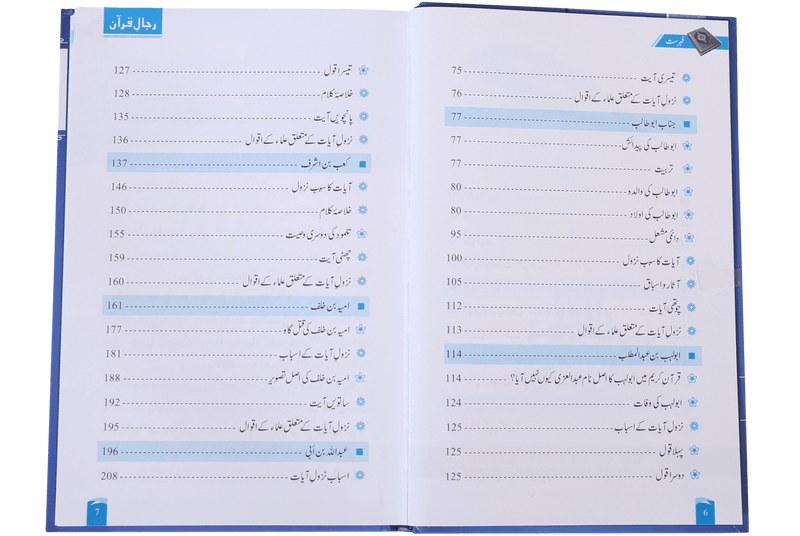 فہرست
تیسری آیت 75
نزول آیات کے متعلق علماء کے اقوال 76
جناب ابوطالب 77
ابوطالب کی پیدائش 77
تربیت 77
ابوطالب کی والدہ 80
ابوطالب کی اولاد 80
دائمی مشعل 95
آیات کا سبب نزول 100
آثار و اسباق 105
چوتھی آیات 112
نزول آیات کے متعلق علماء کے اقوال 113
ابولہب بن عبدالمطلب 114
قرآن کریم میں ابولہب کا اصل نام عبدالعزی کیوں نہیں آیا؟ 114
ابولہب کی وفات 124
نزول آیات کے اسباب 125
پہلا قول 125
دوسرا قول 125
6
رجال قرآن
تیسرا قول 127
خلاصۂ کلام 128
پانچویں آیت 135
نزول آیات کے متعلق علماء کے اقوال 136
کعب بن اشرف 137
آیات کا سبب نزول 146
خلاصۂ کلام 150
تلمود کی دوسری وصیت 155
چھٹی آیت 159
نزول آیات کے متعلق علماء کے اقوال 160
امیہ بن خلف 161
امیہ بن خلف کی قتل گاہ 177
نزول آیات کے اسباب 181
امیہ بن خلف کی اصل تصویر 188
ساتویں آیت 192
نزول آیات کے متعلق علماء کے اقوال 195
عبداللہ بن اُبی 196
اسباب نزول آیات 208
7